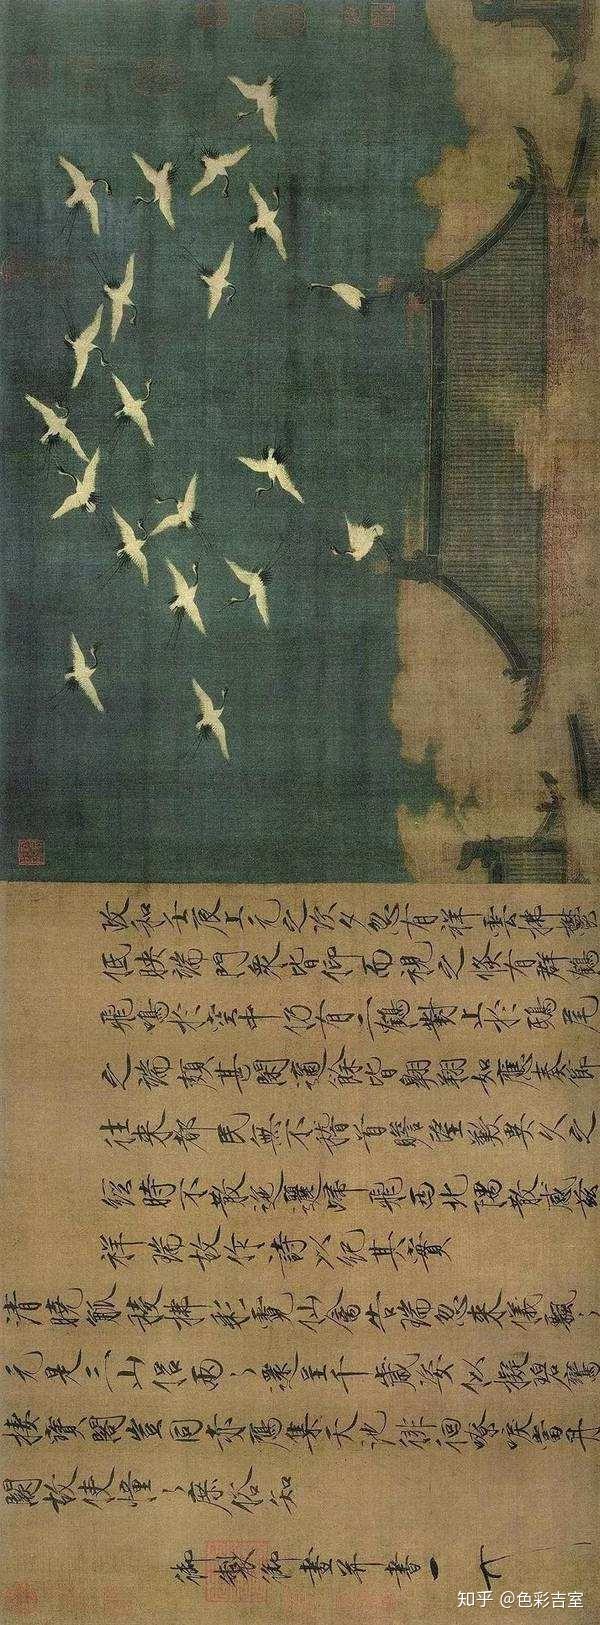 政和壬辰上元之次夕忽有祥雲拂鬱
低映端門衆皆仰而視之倏有群鶴
飛鳴於空中仍有二鶴對止於鴟尾
之端頗甚閑適餘皆翱翔如應奏節
往來都民無不稽首瞻望歎異久之
經時不散迤邐歸飛西北隅散感茲
祥瑞故作詩以紀其實
清曉觚稜拂彩霓仙禽告瑞忽來儀飄〻
元是三山侶兩〻還呈千歲姿似擬碧鸞
棲寶閣豈同赤鴈集天池徘徊嘹唳當丹
闕故使憧〻庶俗知
御製御畫并書
知乎 @色彩吉室